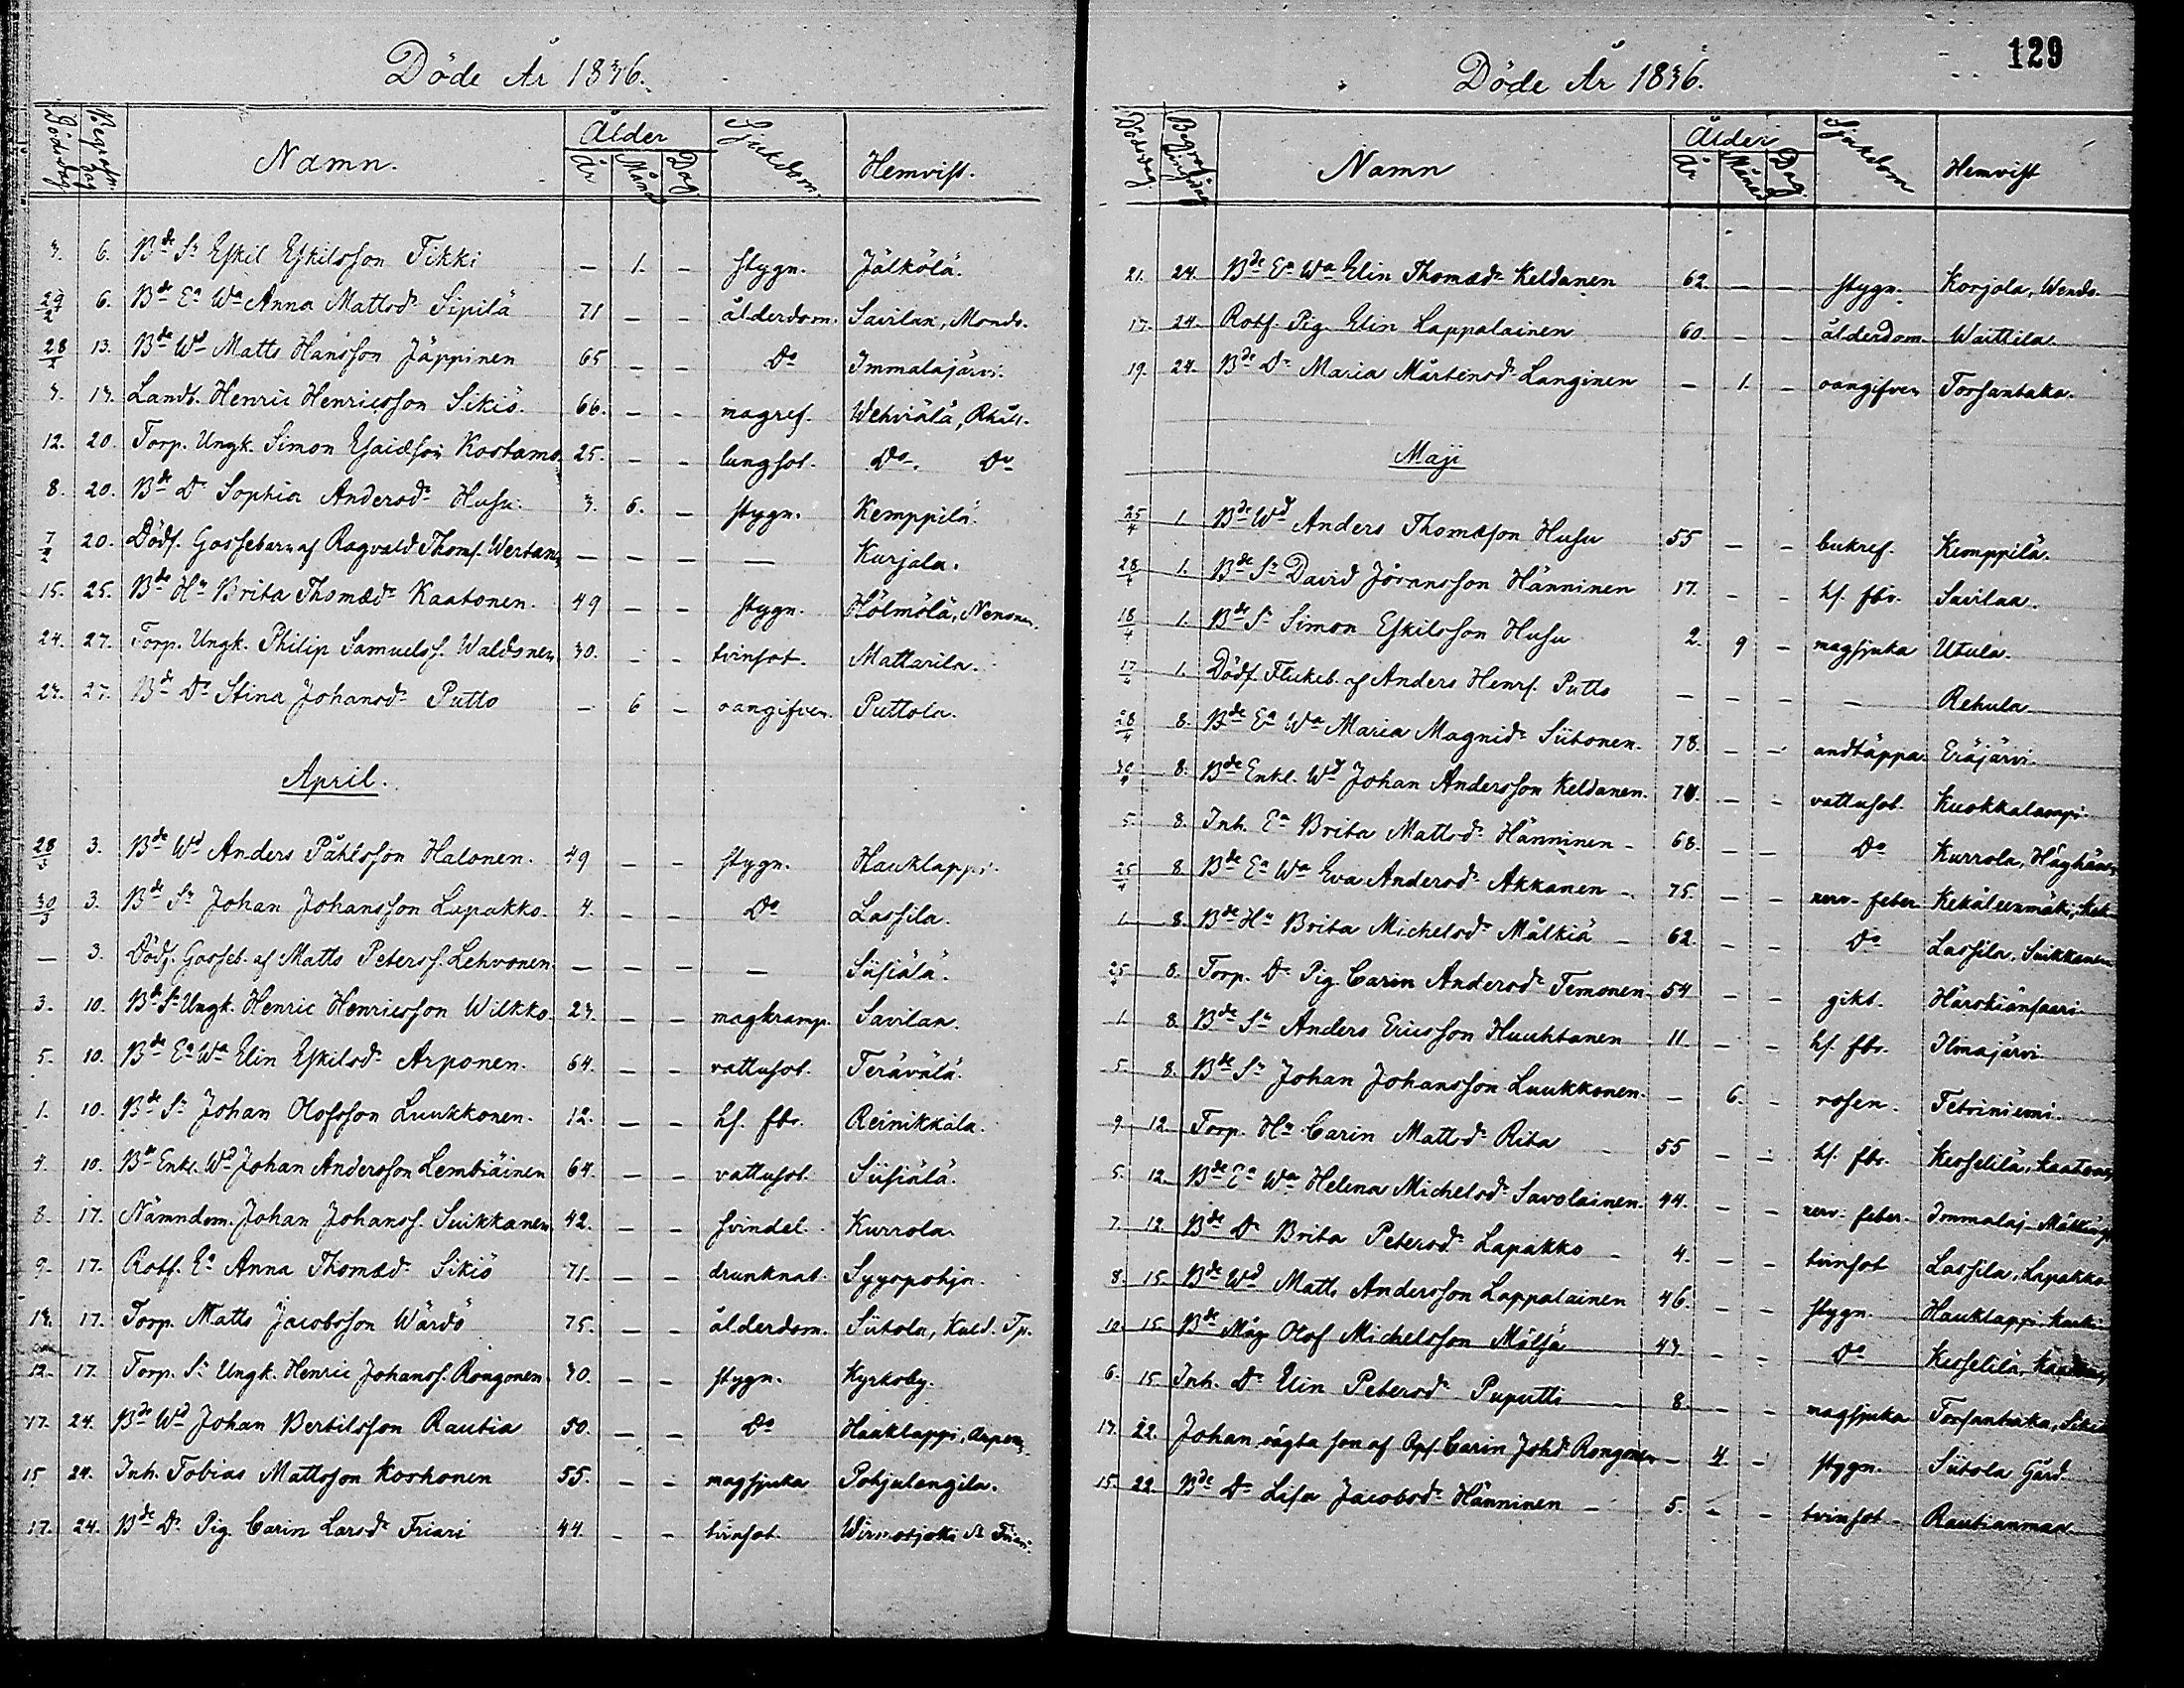 Döde År 1836.
Dödsdag Begrafn. dag Namn. Ålder År Månad Dag Sjukdom. Hemvist.
3. 6. Bde Sn Eskil Eskilsson Tikki — 1. — stygn. Jälkölä.
29/2 6. Bde Ea Wa Anna Mattsdr Sipilä 71 — — ålderdom. Savilax, Mondo.
28/2 13. Bde Wd Matts Hansson Jäppinen 65 — — Do Immalajärvi.
3. 13. Landb. Henric Henricsson Sikiö. 66. — — magref. Wehviälä, Rhåll.
12. 20. Torp. Ungk. Simon Esaiæson Kostamo 25. — — lungsot. Do. Do
8. 20. Bde Dr Sophia Andersdr Husu. 3. 6. — stygn. Kemppilä.
7/2 20. Dödf. Gossebarn af Ragvald Thoms. Wertan — — — — Kurjala.
15. 25. Bde Hu Brita Thomædr Kaatonen. 49 — — stygn. Hölmölä, Nenonen.
24. 27. Torp. Ungk. Philip Samuelss. Waldonen 30. — — tvinsot. Mattarila.
23. 27. Bde Dr Stina Johansdr Putto — 6 — oangifven. Puttola.
April.
28/3 3. Bde Wd Anders Påhlsson Halonen. 49 — — stygn. Hauklappi.
30/3 3. Bde Sn Johan Johansson Lapakko. 4. — — Do Lassila.
— 3. Dödf. Gosseb. af Matts Peterss. Lehvonen. — — — — Siisiälä.
3. 10. Bde Sn Ungk. Henric Henricsson Wilkko. 23. — — magkramp. Savilax.
5. 10. Bde Ea Wa Elin Eskilsdr Arponen. 64. — — vattusot. Terävälä.
1. 10. Bde Sn Johan Olofsson Luukkonen. 12. — — hs. fbr. Reinikkala.
4. 10. Bde Enkl. Wd Johan Andersson Lembiäinen 64. — — vattusot. Siisiälä.
8. 17. Nämndem. Johan Johanss. Suikkanen 42. — — svindel. Kurrola.
9. 17. Rotf. Ea Anna Thomædr Sikiö 71. — — drunknat. Syyspohja.
13. 17. Torp. Matts Jacobsson Wärdö 75. — — ålderdom. Siitola, Kuld. Tp.
12. 17. Torp. Sn Ungk. Henric Johanss. Rongonen 30. — — stygn. Kyrkoby.
17. 24. Bde Wd Johan Bertilsson Rautia 50. — — Do Hauklappi, Arpon.
15 24. Inh. Tobias Mattsson Korhonen 55. — — magsjuka Pohjalangila.
17. 24. Bde Dr Pig Carin Larsdr Friari 44. — — tvinsot.
129
Döde År 1836.
Dödsdag Begrafningsdag Namn Ålder År Månad Dag Sjukdom Hemvist
21. 24. Bde Ea Wa Elin Thomædr Keldanen 62. — — stygn. Korjola, Wendo.
17. 24. Rotf. Pig Elin Lappalainen 60. — — ålderdom. Waittila.
19. 24. Bde Dr Maria Mårtensdr Langinen — 1. — oangifven Torsantaka.
Maji
25/4 1. Bde Wd Anders Thomæson Husu 55 — — bukref. Kemppilä.
28/4 1. Bde Sn David Jöransson Hänninen 17. — — hs. fbr. Savilax.
18/4 1. Bde Sn Simon Eskilsson Husu 2. 9 — magsjuka Utula.
17/4 1. Dödf. Flickeb. af Anders Henrs. Putto — — — — Rehula.
28/4 8. Bde Ea Wa Maria Magnidr Siitonen. 78. — — andtäppa. Eräjärvi.
30/4 8. Bde Enkl. Wd Johan Andersson Keldanen. — — vattusot. Kuokkalampi.
5. 8. Inh. Ea Brita Mattsdr Hänninen 68. — — Do Kurrola,
25/4 8 Bde Ea Wa Eva Andersdr Akkanen 75. — — nerv-feber Kekäleenmäki,
1. 8. Bde Hu Brita Michelsdr Mälkiä 62. — — Do Lassila, Suikkanen
25/4 8. Torp. Dr Pig Carin Andersdr Temonen 54 — — gikt. Härskiänsaari.
1. 8. Bde Sn Anders Ericsson Huuhtanen 11. — — hs. fbr. Ilmajärvi.
5. 8. Bde Sn Johan Johansson Luukkonen. — 6. — rosen. Tetriniemi.
9. 12. Torp. Hu Carin Mattsdr Rita 55 — — hs. fbr. Kesselilä, Kaaton
5. 12. Bde Ea Wa Helena Michelsdr Savolainen. 44. — — nerv-feber. Immalaj.
7. 12. Bde Dr Brita Petersdr Lapakko 4. — — tvinsot Lassila, Lapakko
8. 15. Bde Wd Matts Andersson Lappalainen 46. — — stygn. Hauklappi
10. 15. Bde Måg Olof Michelsson Mälsä 43. — — Do Kesselilä,
6. 15. Inh. Dr Elin Petersdr Puputti 8. — — magsjuka Torsantaka, Sikiö
17. 22. Johan oägta son af Carin Johd. Rongonen — 4. — stygn. Siitola Gård.
15. 22. Bde Dr Lisa Jacobsdr Hänninen 5. — — tvinsot Rautianmaa